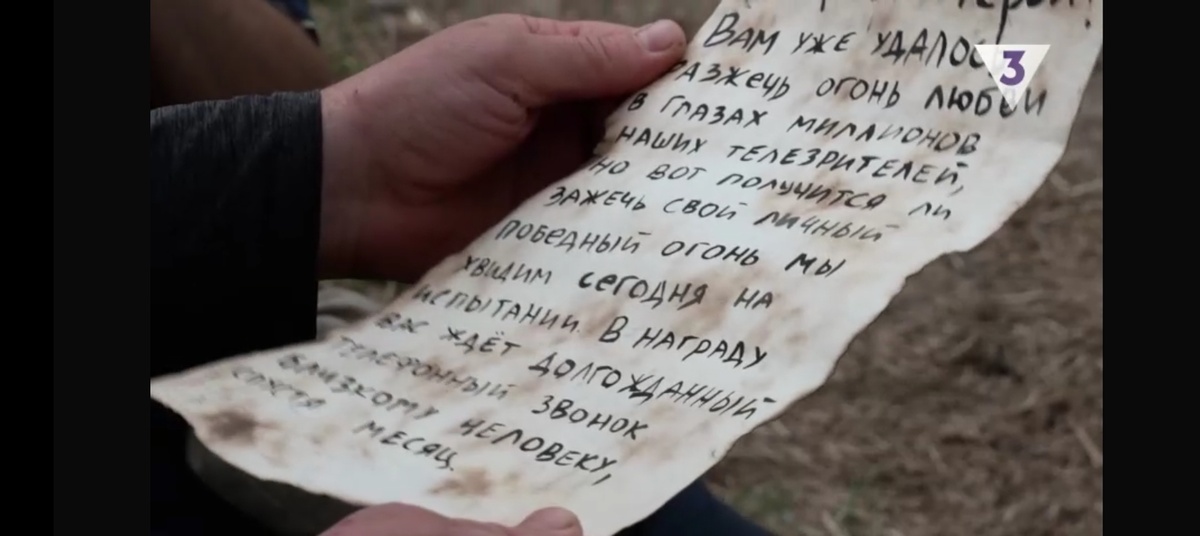 герои!
Вам уже удалось
разжечь огонь любви
в глазах миллионов
наших телезрителей,
но вот получится ли
зажечь свой личный
победный огонь мы
увидим сегодня на
испытании. В награду
вас ждёт долгожданный
телефонный звонок
близкому человеку,
спустя месяц.
3